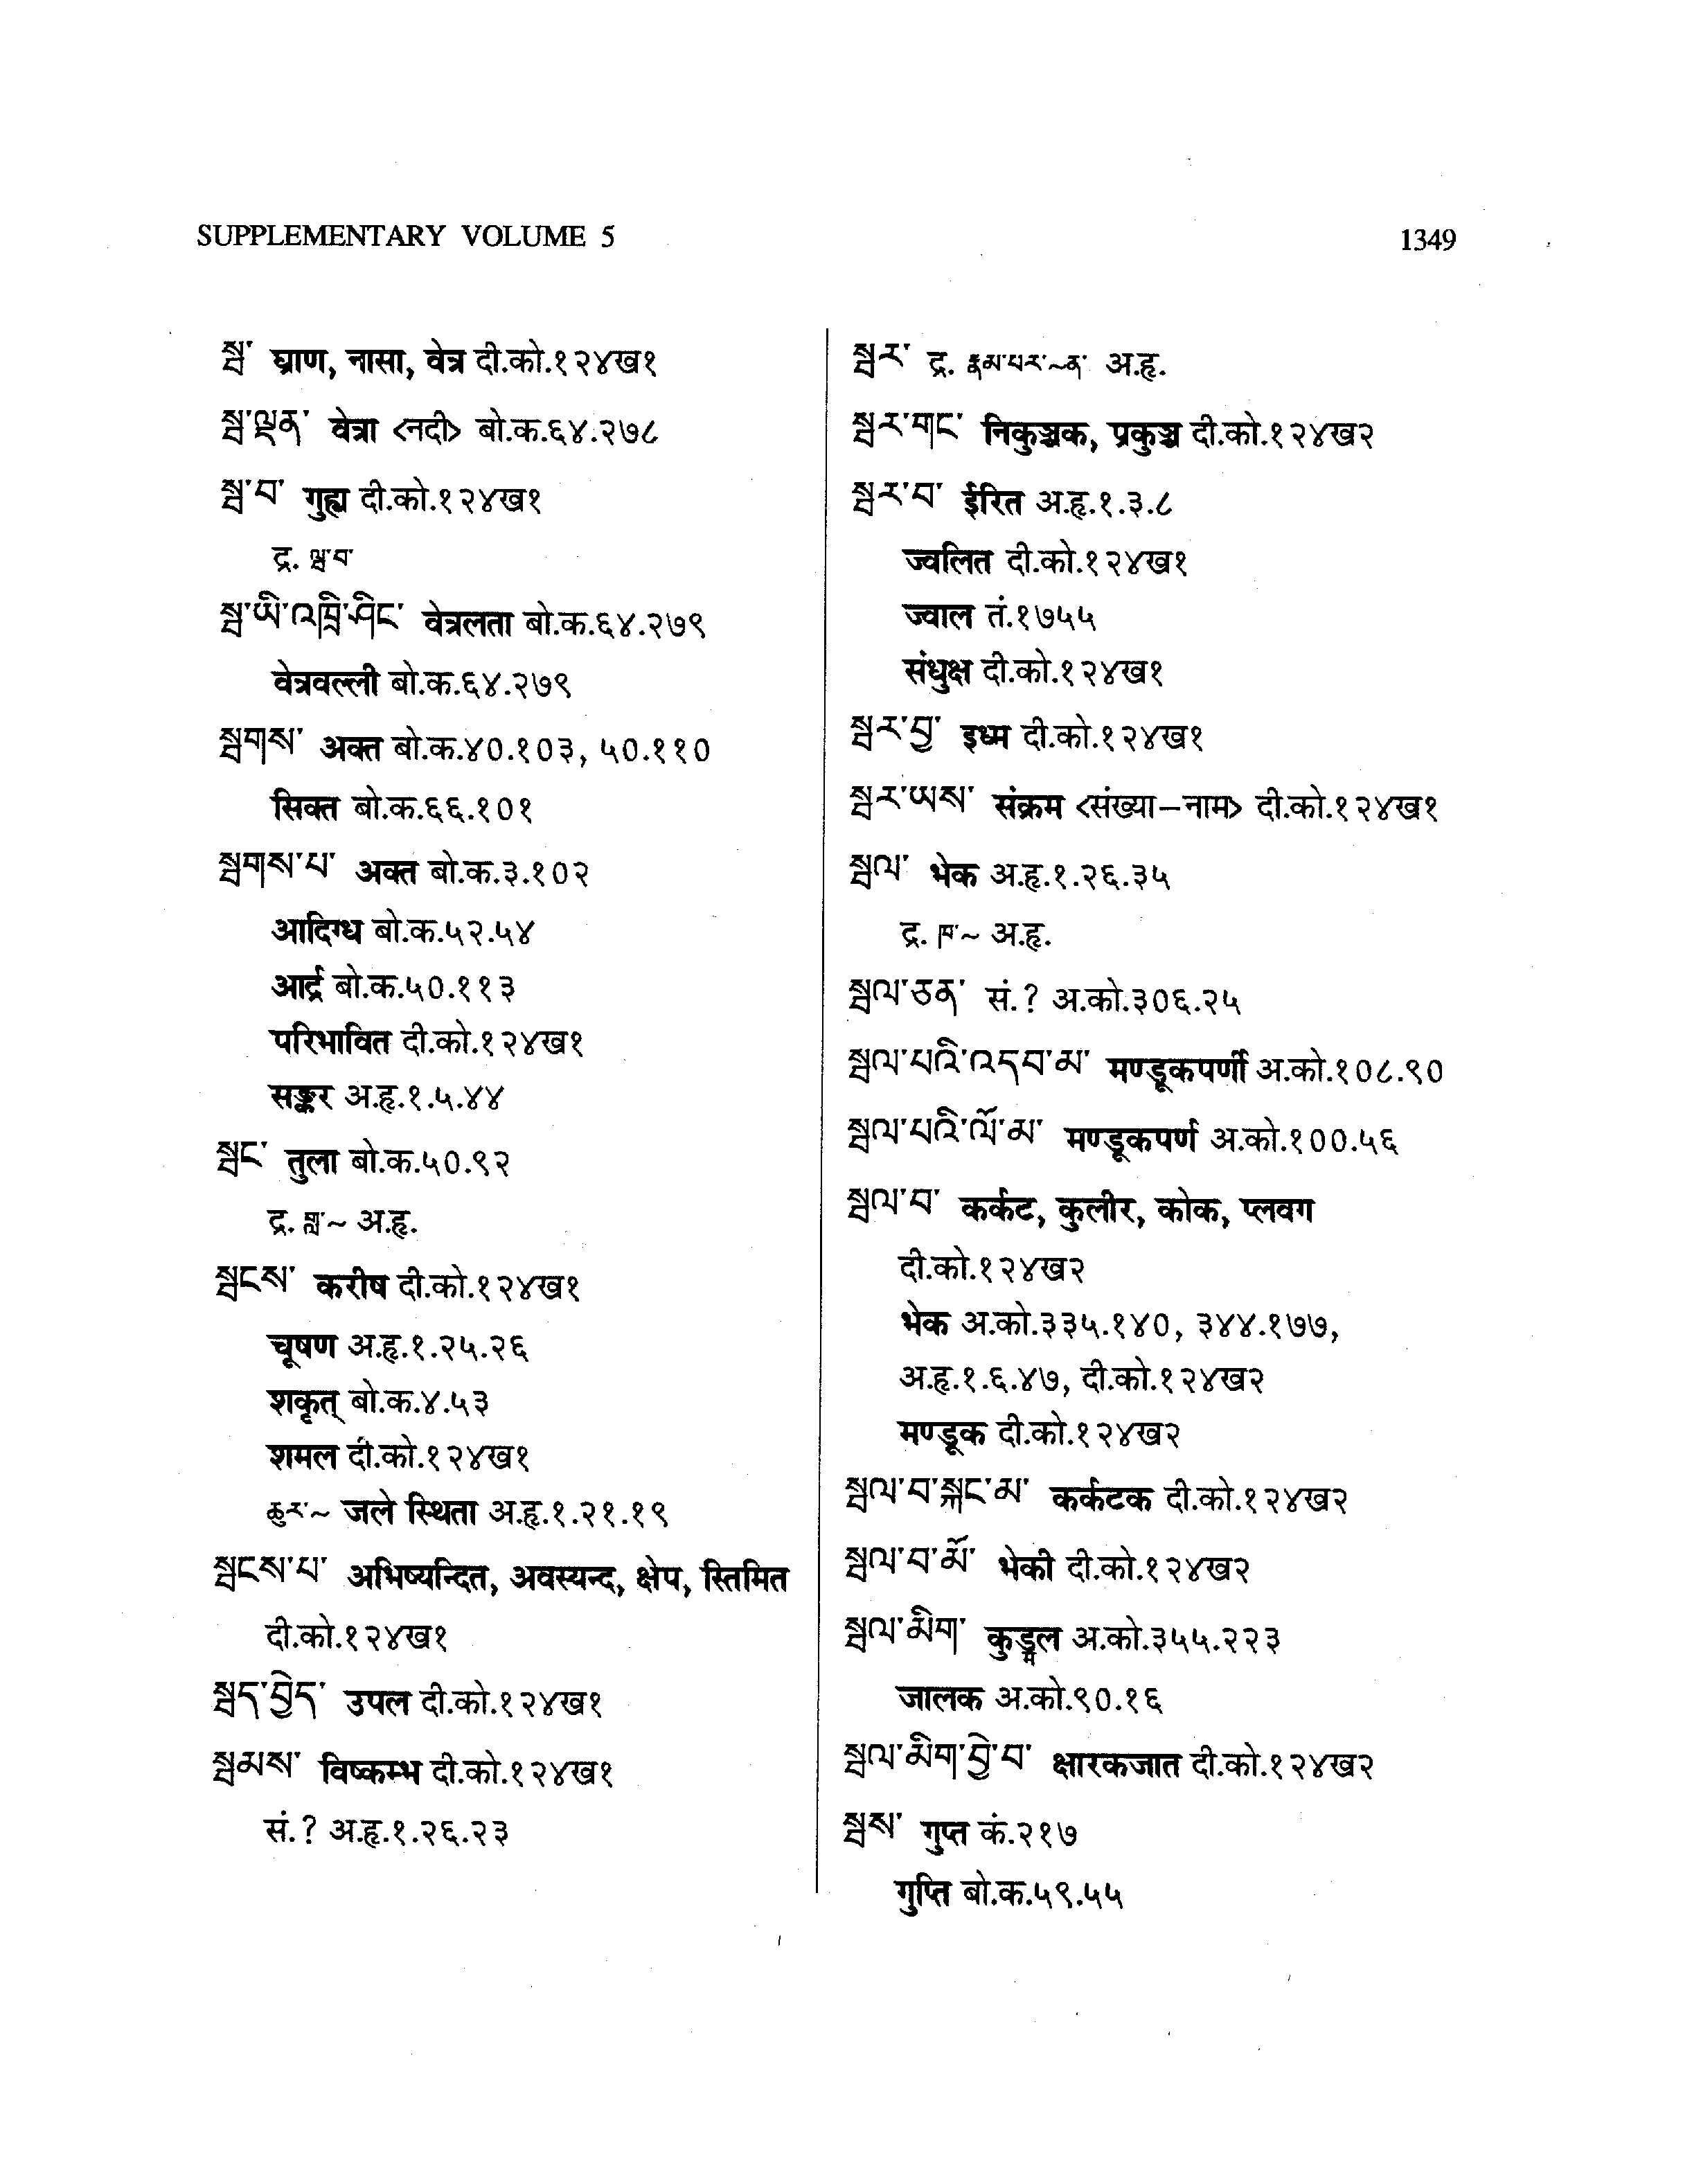 SUPPLEMENTARY VOLUME 5 1349
སྦྲ་ घ्राण, नासा, वेत्र दी.को.१२४ख१
སྦྲ་ལྡན་ वेत्रा <नदी> बो.क.६४.२७८
སྦ་བ་ गुह्य दी.को.१२४ख१
द्र.
སྦ་ཡི་འཁྲི་ཤིང་ वेत्रलता बो.क.६४.२७९
वेत्रवल्ली बो.क.६४.२७९
སྦགས་ अक्त बो.क.४०.१०३, ५०.११०
सिक्त बो.क.६६.१०१
སྦགས་པ་ अक्त बो.क.३.१०२
आदिग्ध बो.क.५२.५४
आर्द्र बो.क.५०.११३
परिभावित दी.को.१२४ख१
सङ्कर अ.हृ.१.५.४४
སྦང་ तुला बो.क.५०.९२
द्र. ~ अ.हृ.
སྦངས་ करीष दी.को.१२४ख१
चूषण अ.हृ.१.२५.२६
शकृत् बो.क.४.५३
शमल दी.को.१२४ख१
ཆུར་~ जले स्थिता अ.हृ.१.२१.१९
སྦངས་པ་ अभिष्यन्दित, अवस्यन्द, क्षेप, स्तिमित
दी.को.१२४ख१
སྦད་བྱེད་ उपल दी.को.१२४ख१
སྦམས་ विष्कम्भ दी.को.१२४ख१
सं.? अ.हृ.१.२६.२३
སྦར་ द्र. རྣམ་པར་~ན་ अ.हृ.
སྦར་གང་ निकुञ्चक, प्रकुञ्च दी.को.१२४ख२
སྦར་བ་ ईरित अ.हृ.१.३.८
ज्वलित दी.को.१२४ख१
ज्वाल तं.१७५५
संधुक्ष दी.को.१२४ख१
སྦར་བྱ་ इध्म दी.को.१२४ख१
སྦར་ཡས་ संक्रम <संख्या–नाम> दी.को.१२४ख१
སྦལ་ भेक अ.हृ.१.२६.३५
द्र. ཁ་~ अ.हृ.
སྦལ་ཅན་ सं.? अ.को.३०६.२५
སྦལ་པའི་འདབ་མ་ मण्डूकपर्णी अ.को.१०८.९०
སྦལ་པའི་ལོ་མ་ मण्डूकपर्ण अ.को.१००.५६
སྦལ་བ་ कर्कट, कुलीर, कोक, प्लवग
दी.को.१२४ख२
भेक अ.को.३३५.१४०, ३४४.१७७,
अ.हृ.१.६.४७, दी.को.१२४ख२
मण्डूक दी.को.१२४ख२
སྦལ་བ་སྐང་མ་ कर्कटक दी.को.१२४ख२
སྦལ་བ་མོ་ भेकी दी.को.१२४ख२
སྦལ་མིག་ कुड्मल अ.को.३५५.२२३
जालक अ.को.९०.१६
སྦལ་མིག་བྱེ་བ་ क्षारकजात दी.को.१२४ख२
སྦས་ गुप्त कं.२१७
गुप्ति बो.क.५९.५५